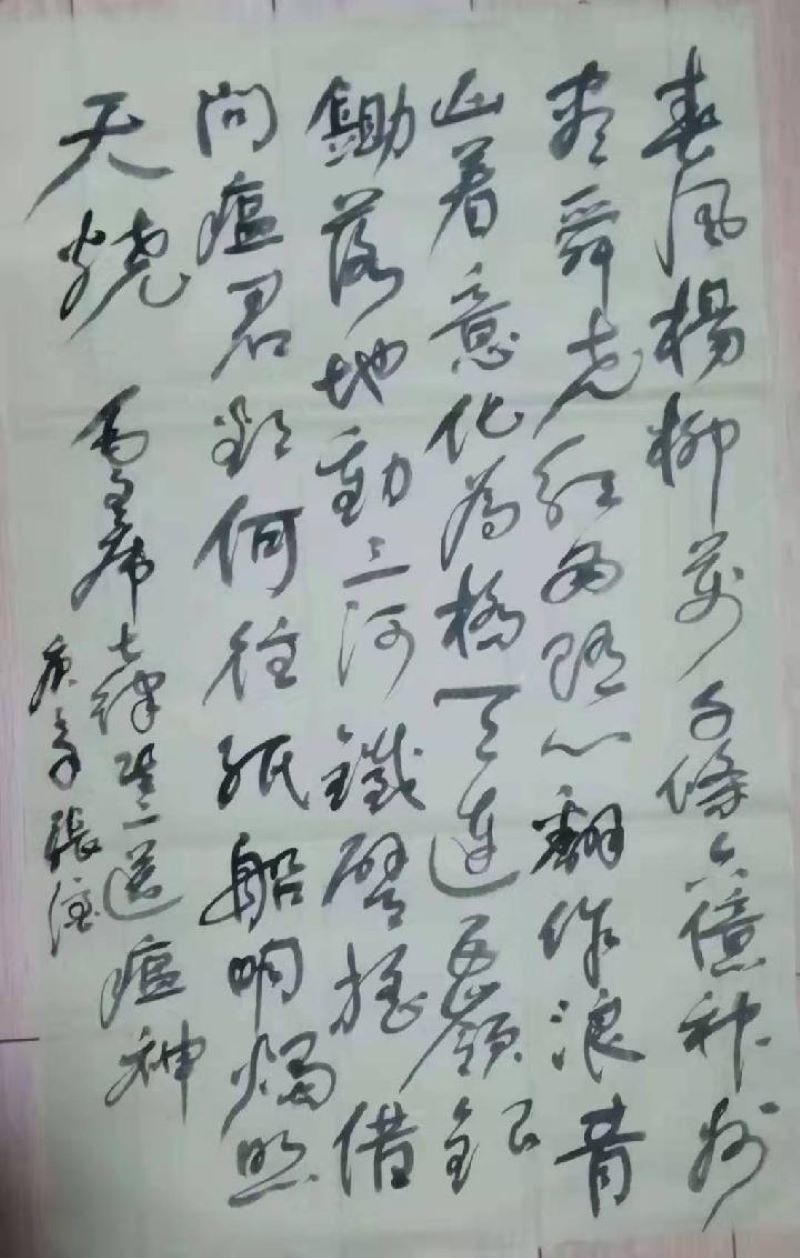 春風楊柳萬千條六億神州
盡舜堯紅雨隨心翻作浪青
山着意化為橋天連五嶺銀
鋤落地動三河鐵臂搖借
問瘟君欲何往紙船明燭照
天燒
毛主席七律送瘟神
庚子張